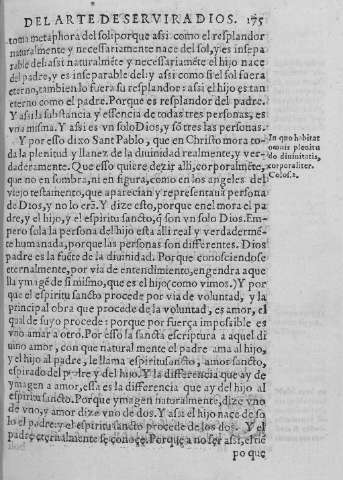 DEL ARTE DE SERVIR A DIOS. 175
toma metaphora del sol: porque assi como el resplandor
naturalmente y necessariamente nace del sol, y es insepa
rable del: assi naturalmẽte y necessariamẽte el hijo nace
del padre, y es inseparable del: y assi como si el sol fuera
eterno, tambien lo fuera su resplandor: assi el hijo es tan
eterno como el padre. Porque es resplandor del padre.
Y assi la substancia y essencia de todas tres personas, es
vna misma. Y assi es vn solo Dios, y sõ tres las personas.
Y por esso dixo Sant Pablo, que en Christo mora to-
da la plenitud y llanez de la diuinidad realmente, y ver-
daderamente. Que esso quiere dezir alli, corporalmẽte,
que no en sombra, ni en figura, como en los angeles del
viejo testamento, que aparecian y representauã persona
de Dios, y no lo erã. Y dize esto, porque en el mora el pa
dre, y el hijo, y el espiritu sancto, q̃ son vn solo Dios. Em-
pero sola la persona del hijo esta alli real y verdadermẽ-
te humanada, porque las personas son differentes. Dios
padre es la fuẽte de la diuinidad. Porque conosciendose
eternalmente, por via de entendimiento, engendra aque
lla ymagẽ de si mismo, que es el hijo (como vimos.) Y por
que el espiritu sancto procede por via de voluntad, y la
principal obra que procede de la voluntad, es amor, el
qual de suyo procede: porque por fuerça impossible es
vno amar a otro. Por esso la sancta escriptura a aquel di
uino amor, con que naturalmente el padre ama al hijo,
y el hijo al padre, le llama espiritu sancto, amor sancto,
espirado del padre y del hijo. Y la differencia que ay de
ymagen a amor, essa es la differencia que ay del hijo al
espiritu sancto. Porque ymagen naturalmente, dize vno
de vno, y amor dize vno de dos. Y assi el hijo nace de so
lo el padre: y el espiritu sancto procede de los dos. Y el
padre eternalmente se conoce. Porque a no ser assi, el tiẽ
po que
In quo habitat
omnis plenitu
do diuinitatis,
corporaliter.
Colos. 2.